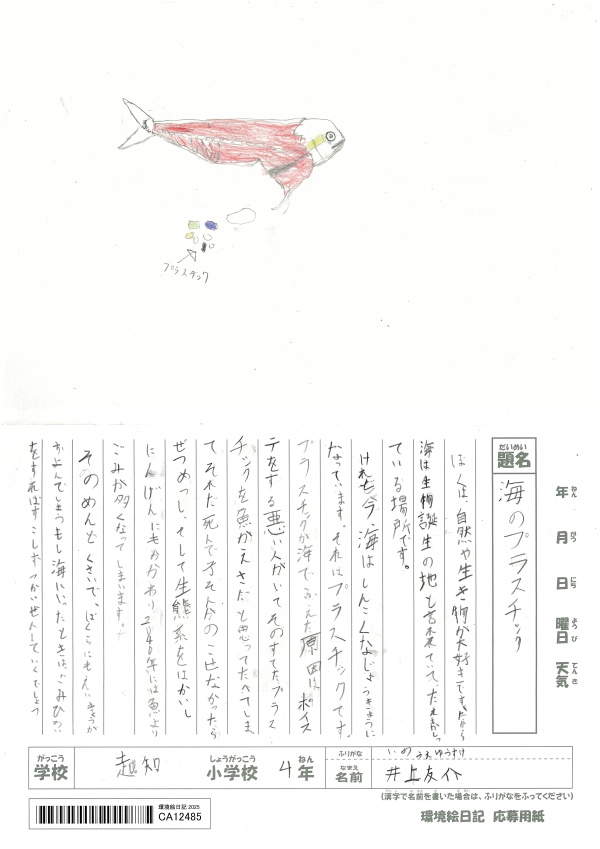 プラスチック
年 ねん
月 がつ
日 にち
曜日 ようび
天気 てんき
だいめい
題名
海のプラスチック
ぼくは、自然や生き物が大好きです。だから
海は生物誕生の地と言われていて、
ている場所です。
けれども今、海はしんこくな
なっています。それはプラスチックです。
プラスチックが海でふえた原因は、ポイス
テをする悪い人がいてそのすてたプラス
チックを魚がえさだと思ってたべてしま
て それだ死んで子そんがのこせなかったら
ぜつめつし、そして生態系をはかいし
にんげんにもかかわり2040年には魚より
ごみが多くなってしまいます。
そのめんどくさいで、ぼくらにもえいきょうが
およんでしまうもし海にいったときは、ごみひろい
をすればすこしずつかいぜんしていくでしょう
がっこう
学校
越知
しょうがっこう
小学校
4
ねん
年
ふりがな
いのうえゆうすけ
なまえ
名前
井上友介
(漢字で名前を書いた場合は、ふりがなをふってください)
環境絵日記 2025
CA12485
環境絵日記 応募用紙